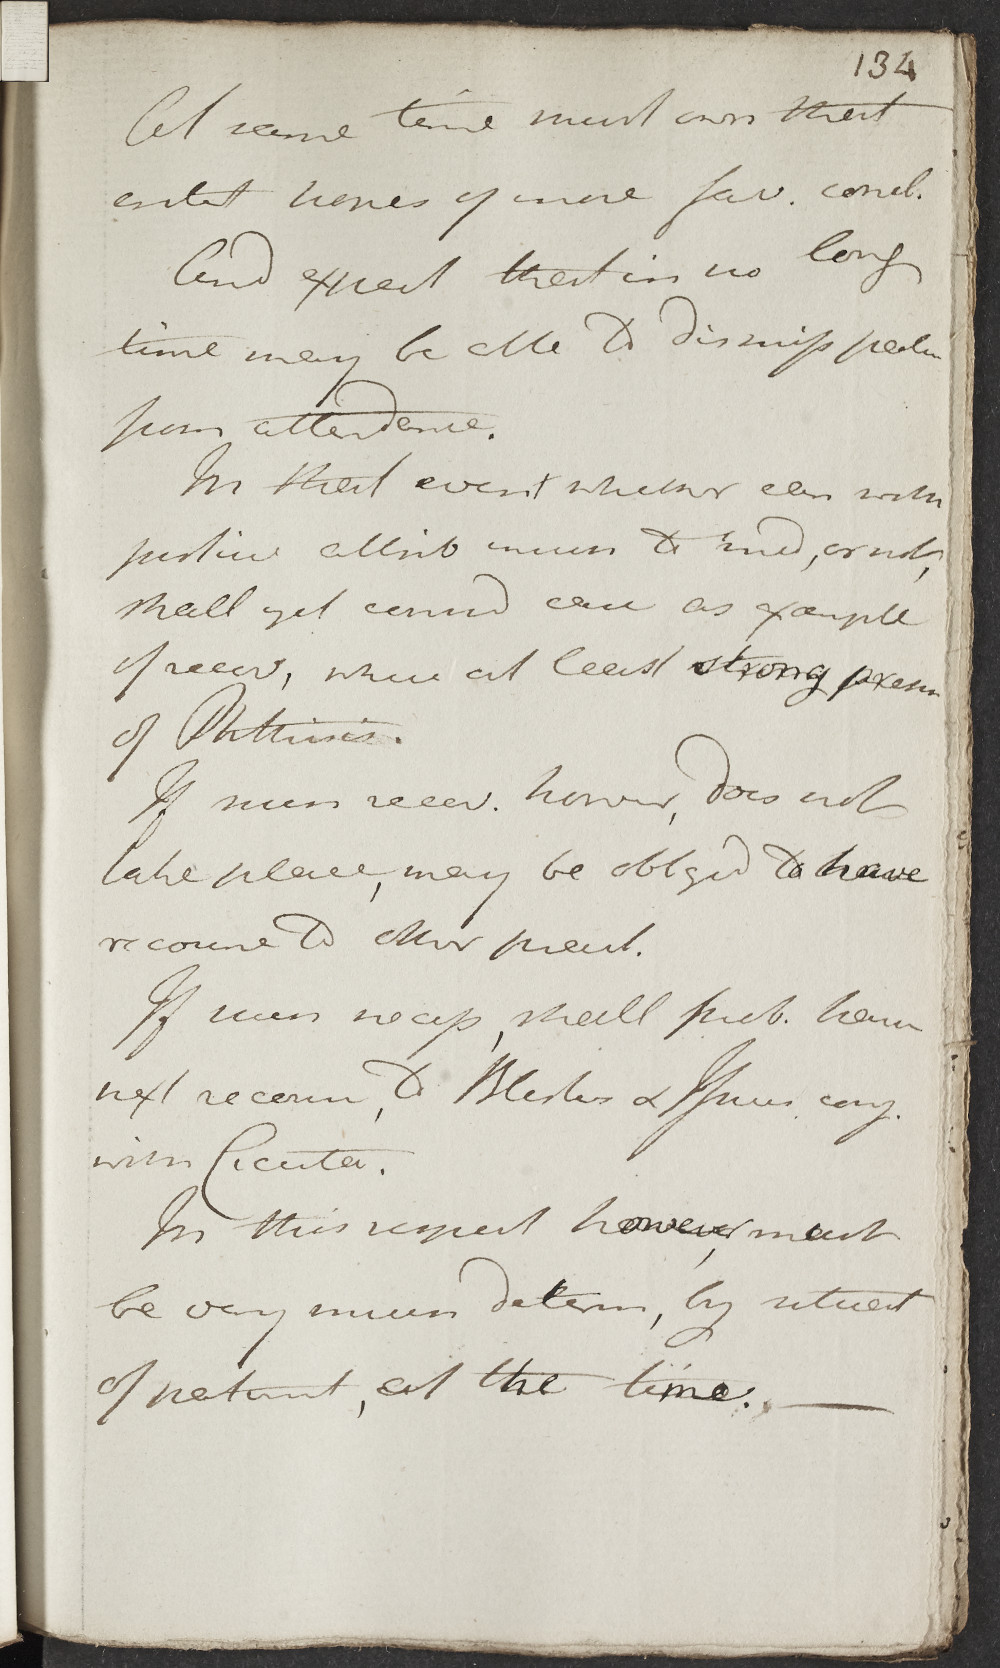 134
At same time must own that
entert hopes of more fav. concl.
And expect that in no long
time may be able to dismiss patn
from attendance.
In that event whether can with
justice attrib much to med, or not,
shall yet consid case as example
of recov, where at least strong presm
of Phthisis.
If such recov. however, does not
take place, may be obliged to have
recourse to other pract.
If such necess, shall prob. have
next recours, to Blisters & Issues conj.
with Cicuta.
In this respect however, must
be very much determ, by situat
of patient, at the time.